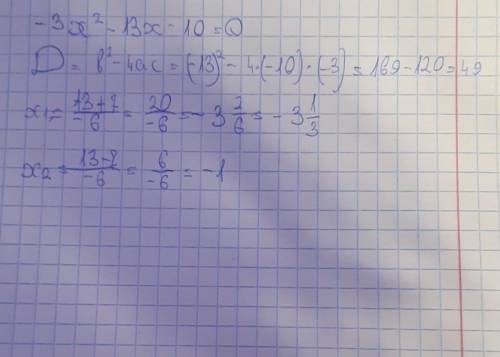 -3x² - 13x - 10 = 0
D = b² - 4ac = (-13)² - 4·(-10)·(-3) = 169 - 120 = 49
x₁ = 13+7/-6 = 20/-6 = -3 2/6 = -3 1/3
x₂ = 13-7/-6 = 6/-6 = -1